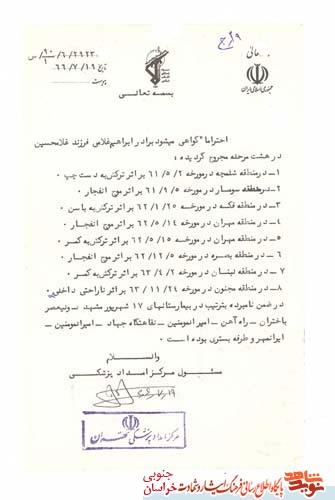 ۹ (ج
جمهوری اسلامی ایران
تاریخ ۶۶/۷/۱۹
پیوست
بسمه تعالی
احتراما" گواهی میشود برادر ابراهیم غلامی فرزند غلامحسین
در هشت مرحله مجروح گردیده :
۱ – در منطقه شلمچه در مورخه ۶۱/۵/۲ بر اثر ترکش به دست چپ ۰
۲ – در منطقه سومار در مورخه ۶۱/۹/۵ بر اثر موج انفجار ۰
۳ – در منطقه فکه در مورخه ۶۲/۱/۲۵ بر اثر ترکش به باسن ۰
۴ – در منطقه مهران در مورخه ۶۲/۵/۱۴ بر اثر موج انفجار ۰
۵ – در منطقه مهران در مورخه ۶۲/۵/۱۵ بر اثر ترکش به کمر ۰
۶ – در منطقه بصره در مورخه ۶۲/۱۲/۵ بر اثر موج انفجار ۰
۷ – در منطقه لبنان در مورخه ۶۳/۴/۲ بر اثر ترکش به کمر ۰
۸ – در منطقه مجنون در مورخه ۶۳/۱۱/۲۴ بر اثر ناراحتی داخلی
در ضمن نامبرده بترتیب در بیمارستانهای ۱۷ شهریور مشهد – ولیعصر
باختران – راه آهن – امیرالمومنین – نقاهتگاه جهاد – امیرالمومنین –
ایرانمهر و طرفه بستری بوده است ۰
والسلام
مسئول مرکز امداد پزشکی
مرکز امداد پزشکی تهران
نوید شاهد
پایگاه اطلاع رسانی فرهنگ ایثار و شهادت
خراسان جنوبی